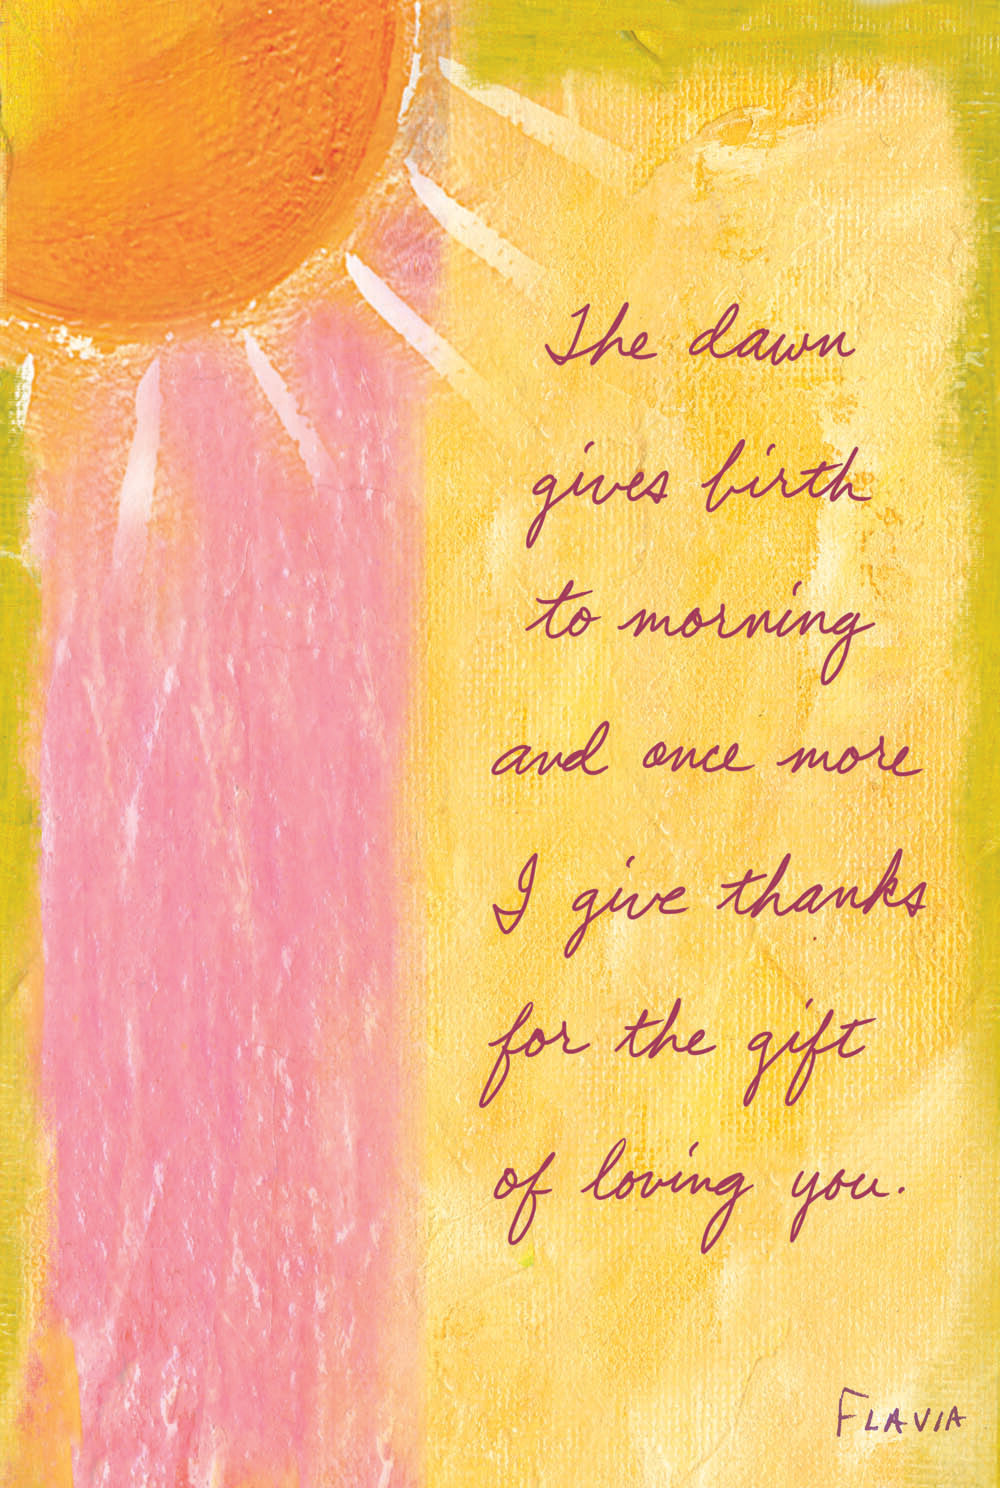 The dawn
gives birth
to morning
and once more
I give thanks
for the gift
of loving you.
FLAVIA